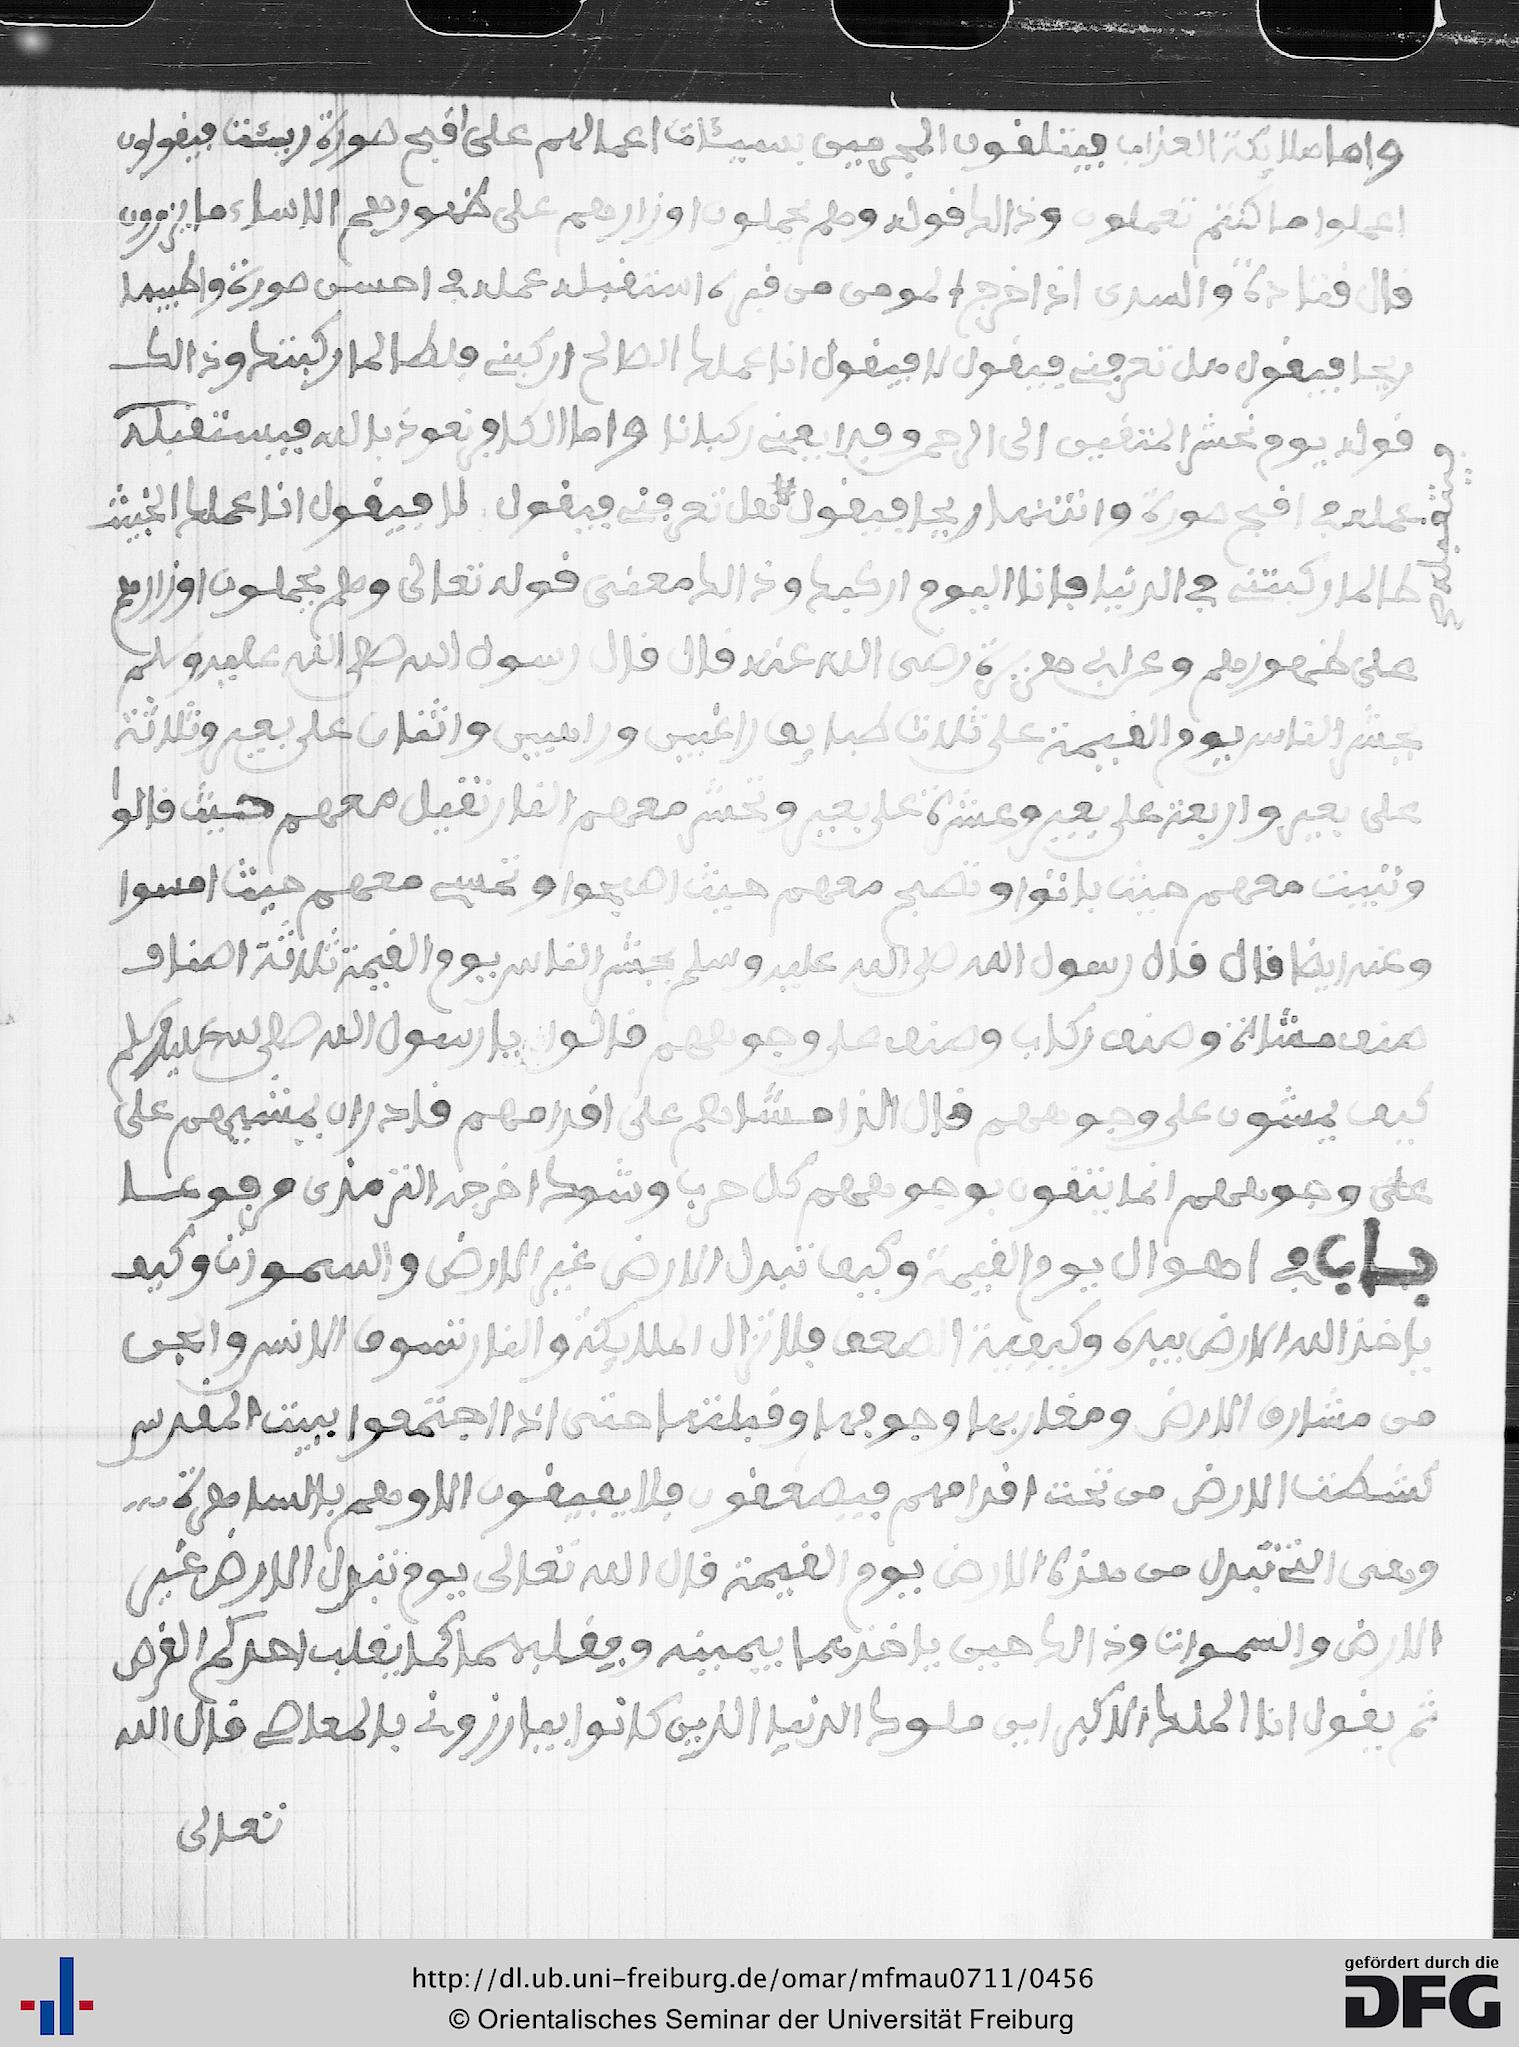 واما ملايكة العذاب فيتلقون المجرمين بسيئات اعمالهم على اقبح صورة ريئت فيقولون
اعملوا ما كنتم تعملون وذالك قوله وهم يحملون اوزارهم على ظهورهم الا ساء ما يزرون
قال قتادة والسدى اذا خرج المومن من قبره استقبله عمله في احسن صورة واطيبها
ريحا فيقول هل تعرفني فيقول لا فيقول انا عملك الصالح اركبني فلطالما ركبتك وذالك
قوله يوم نحشر المتقين الى الرحمن وفدا يعني ركبانا واما الكافر نعوذ بالله فيستقبله
عمله في اقبح صورة وانتنها ريحا فيقول هل تعرفني فيقول لا فيقول انا عملك الخبيث
طالما ركبتني في الدنيا فانا اليوم اركبك وذالك معنى قوله تعالى وهم يحملون اوزارهم
على ظهورهم وعن ابي هريرة رضى الله عنه قال قال رسول الله صلى الله عليه وسلم
يحشر الناس يوم القيمة على ثلاث طبايف راغبين وراهبين واثنان على بعير وثلاثة
على بعير واربعة على بعير وعشرة على بعير وتحشر معهم النار تقيل معهم حيث قالوا
وتبيت معهم حيث باتوا وتصبح معهم حيث اصبحوا وتمسي معهم حيث امسوا
وعنه ايضا قال قال رسول الله صلى الله عليه وسلم يحشر الناس يوم القيمة ثلاثة اصناف
صنف مشاة وصنف ركاب وصنف على وجوههم قالوا يا رسول الله صلى الله عليه وسلم
كيف يمشون على وجوههم قال الذا مشاهم على اقدامهم قادر ان يمشيهم على
على وجوههم انما يتقون بوجوههم كل حرب وشوك اخرجه الترمذى مرفوعا
باب في اهوال يوم القيمة وكيف تبدل الارض غير الارض والسموات وكيف
ياخذ الله الارض بيده وكيفية الصعف فلا تزال الملايكة والنار تسوق الانس والجن
من مشارق الارض ومغاربها وجوفها وقبلتها حتى اذا اجتمعوا ببيت المقدس
كشطت الارض من تحت اقدامهم فيصعقون فلا يفيقون الا وهم بالساهرة
وهى التي تبدل من هذه الارض يوم القيمة قال الله تعالى يوم تبدل الارض غير
الارض والسموات وذالك حين ياخذهما بيمينه ويقلبهما كما يقلب احدكم القرص
ثم يقول انا الملك الاكبر اين ملوك الدنيا الذين كانوا يبارزوني بالمعاصي قال الله
تعالى
http://dl.ub.uni-freiburg.de/omar/mfmau0711/0456
© Orientalisches Seminar der Universität Freiburg
gefördert durch die
DFG